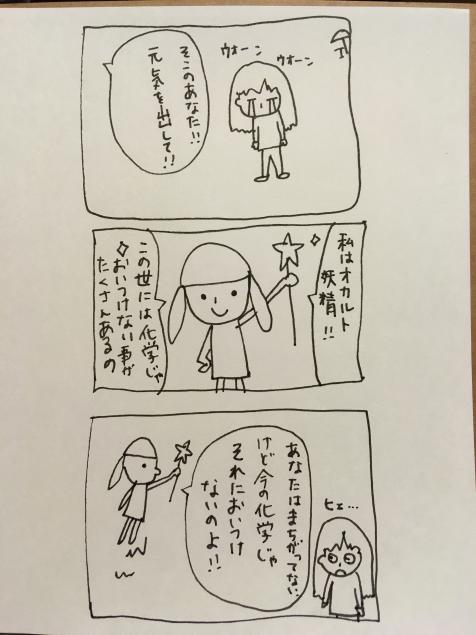 ウオーン
ウオーン
そこのあなた!!
元気を出して!!
私はオカルト
妖精!!
この世には化学じゃ
おいつけない事が
たくさんあるの
ヒェ…
あなたはまちがってない
けど今の化学じゃ
それにおいつけ
ないのよ!!